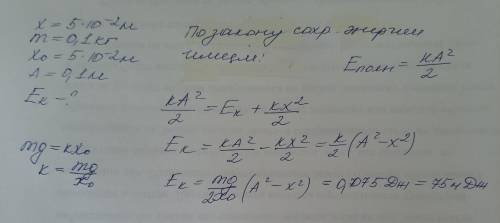 x = 5·10⁻² м
m = 0,1 кг
x₀ = 5·10⁻² м
A = 0,1 м
Eк - ?
mg = kx₀
k = mg/x₀
По закону сохр. энергии
имеем:
Eполн = kA²/2
kA²/2 = Eк + kx²/2
Eк = kA²/2 - kx²/2 = k/2 (A² - x²)
Eк = mg/2x₀ (A² - x²) = 0,075 Дж = 75 мДж